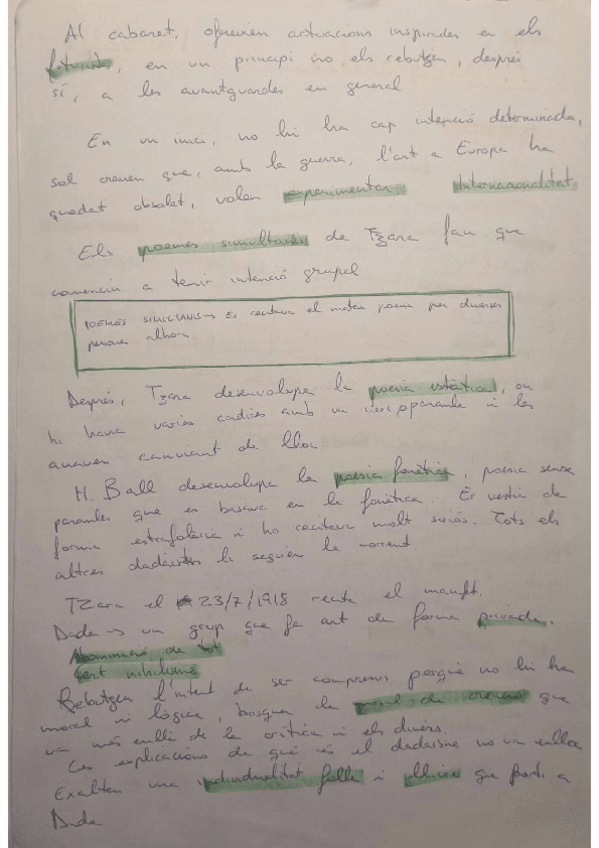 Al cabaret, ofereixen actuacions inspirades en els
futuristes, en un principi no els rebutgen, després
sí, a les avantguardes en general
En un inici, no hi ha cap intenció determinada,
sol creuen que, amb la guerra, l'art a Europa ha
quedat obsolet, volen experimentar Internacionalitat
Els poemes simultanis de Tzara fan que
comencin a tenir intenció grupal
POEMES SIMULTANIS → Es recitava el mateix poema per diverses
persones alhora.
Després, Tzara desenvolupa la poesia estàtica, on
hi havia varies cadires amb un paraula i les
anaven canviant de lloc
H. Ball desenvolupa la poesia fonètica, poesia sense
paraules que es basava en la fonètica. Es vestia de
forma estrafolària i ho recitava molt seriós. Tots els
altres dadaistes li seguien la corrent.
TZara el 23/7/1918 recita el manifest.
Dada → un grup que fa art de forma privada.
Abominació de tot
Cert nihilisme
Rebutgen l'intent de ser compresos perquè no hi ha
moral ni lògica, busquen la de creació que
va més enllà de la crítica i els diners.
Les explicacions de què és el dadaisme no van enlloc
Exalten una individualitat folla i lliure que porti a
Dada